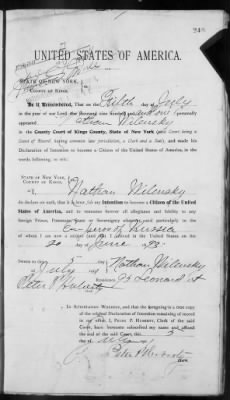 UNITED STATES OF AMERICA.
STATE OF NEW YORK,
COUNTY OF KINGS,
Be it Remembered, That on the Fifth day of July
in the year of our Lord one thousand nine hundred and personally
appeared Nathan Wilensky
in the County Court of Kings County, State of New York (said Court being a
Court of Record, having common law jurisdiction, a Clerk and a Seal), and made his
Declaration of Intention to become a Citizen of the United States of America, in the
words following, to wit:
STATE OF NEW YORK,
COUNTY OF KINGS,
I, Nathan Wilensky
do declare on oath, that it is bona fide my Intention to become a Citizen of the United
States of America, and to renounce forever all allegiance and fidelity to any
foreign Prince, Potentate, State or Sovereignty whatever, and particularly to the
Emperor of Russia
of whom I am now a subject and that I arrived in the United States on the
20 June
5 Nathan Wilensky
July 95 Leonard st
Peter P Huberty
In Attestation Whereof, and that the foregoing is a true copy
of the original Declaration of Intention remaining of record
in my office, I, PETER P. HUBERTY, Clerk of the said
Court, have hereunto subscribed my name and affixed
the seal of the said Court, this 5
day of
Peter P Huberty
Clerk.